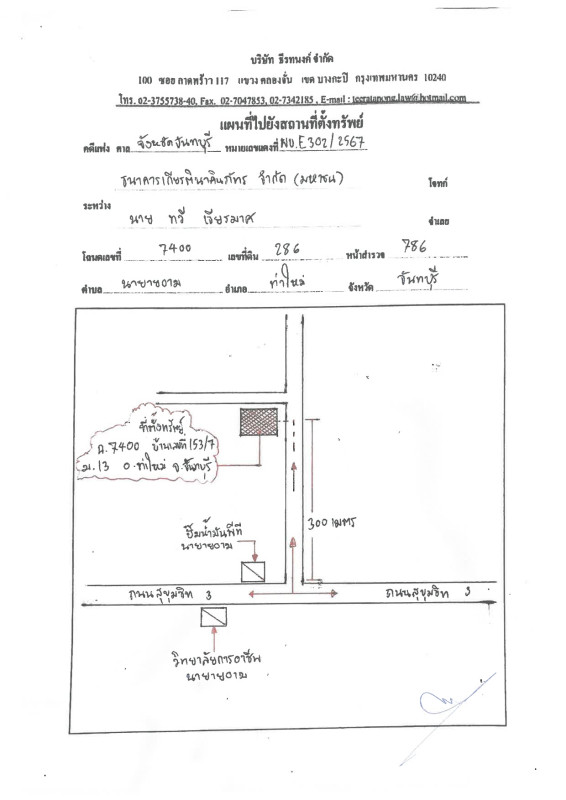 บริษัท ธีรทนงค์ จำกัด
100 ซอย ลาดพร้าว 117 แขวง คลองจั่น เขต บางกะปิ กรุงเทพมหานคร 10240
โทร. 02-3755738-40, Fax. 02-7047853, 02-7342185 , E-mail : teeratanong.law@hotmail.com
แผนที่ไปยังสถานที่ตั้งทรัพย์
คดีแพ่ง ศาล จังหวัดจันทบุรี หมายเลขแดงที่ ผบ.E302/2567
ธนาคารเกียรตินาคินภัทร จำกัด (มหาชน) โจทก์
ระหว่าง
นาย ทวี เจียรมาศ จำเลย
โฉนดเลขที่ 7400 เลขที่ดิน 286 หน้าสำรวจ 786
ตำบล นายายอาม อำเภอ ท่าใหม่ จังหวัด จันทบุรี
ที่ตั้งทรัพย์
ฉ.7400 บ้านเลขที่ 153/7
ม.13 อ.ท่าใหม่ จ.จันทบุรี
300 เมตร
ปั๊มน้ำมันพีที
นายายอาม
ถนนสุขุมวิท 3
ถนนสุขุมวิท 3
วิทยาลัยการอาชีพ
นายายอาม